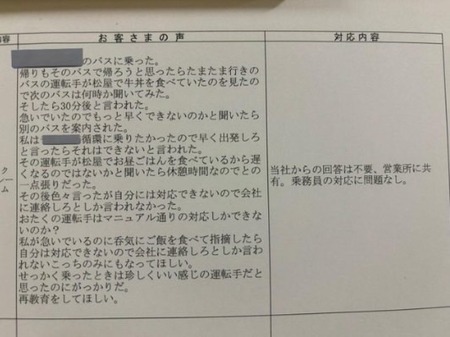 内容
お客さまの声
対応内容
のバスに乗った。
帰りもそのバスで帰ろうと思ったらたまたま行きの
バスの運転手が松屋で牛丼を食べていたのを見たの
で次のバスは何時か聞いてみた。
そしたら30分後と言われた。
急いでいたのでもっと早くできないのかと聞いたら
別のバスを案内された。
私は 循環に乗りたかったので早く出発しろ
と言ったらそれはできないと言われた。
その運転手が松屋でお昼ごはんを食べているから遅
くなるのではないかと聞いたら休憩時間なのでとの
一点張りだった。
その後色々言ったが自分には対応できないので会社
に連絡しろとしか言われなかった。
おたくの運転手はマニュアル通りの対応しかできな
いのか？
私が急いでいるのに呑気にご飯を食べて指摘したら
自分は対応できないので会社に連絡しろとしか言わ
れないこっちのみにもなってほしい。
せっかく乗ったときは珍しくいい感じの運転手だと
思ったのにがっかりだ。
再教育をしてほしい。
クレーム
当社からの回答は不要、営業所に共
有。乗務員の対応に問題なし。